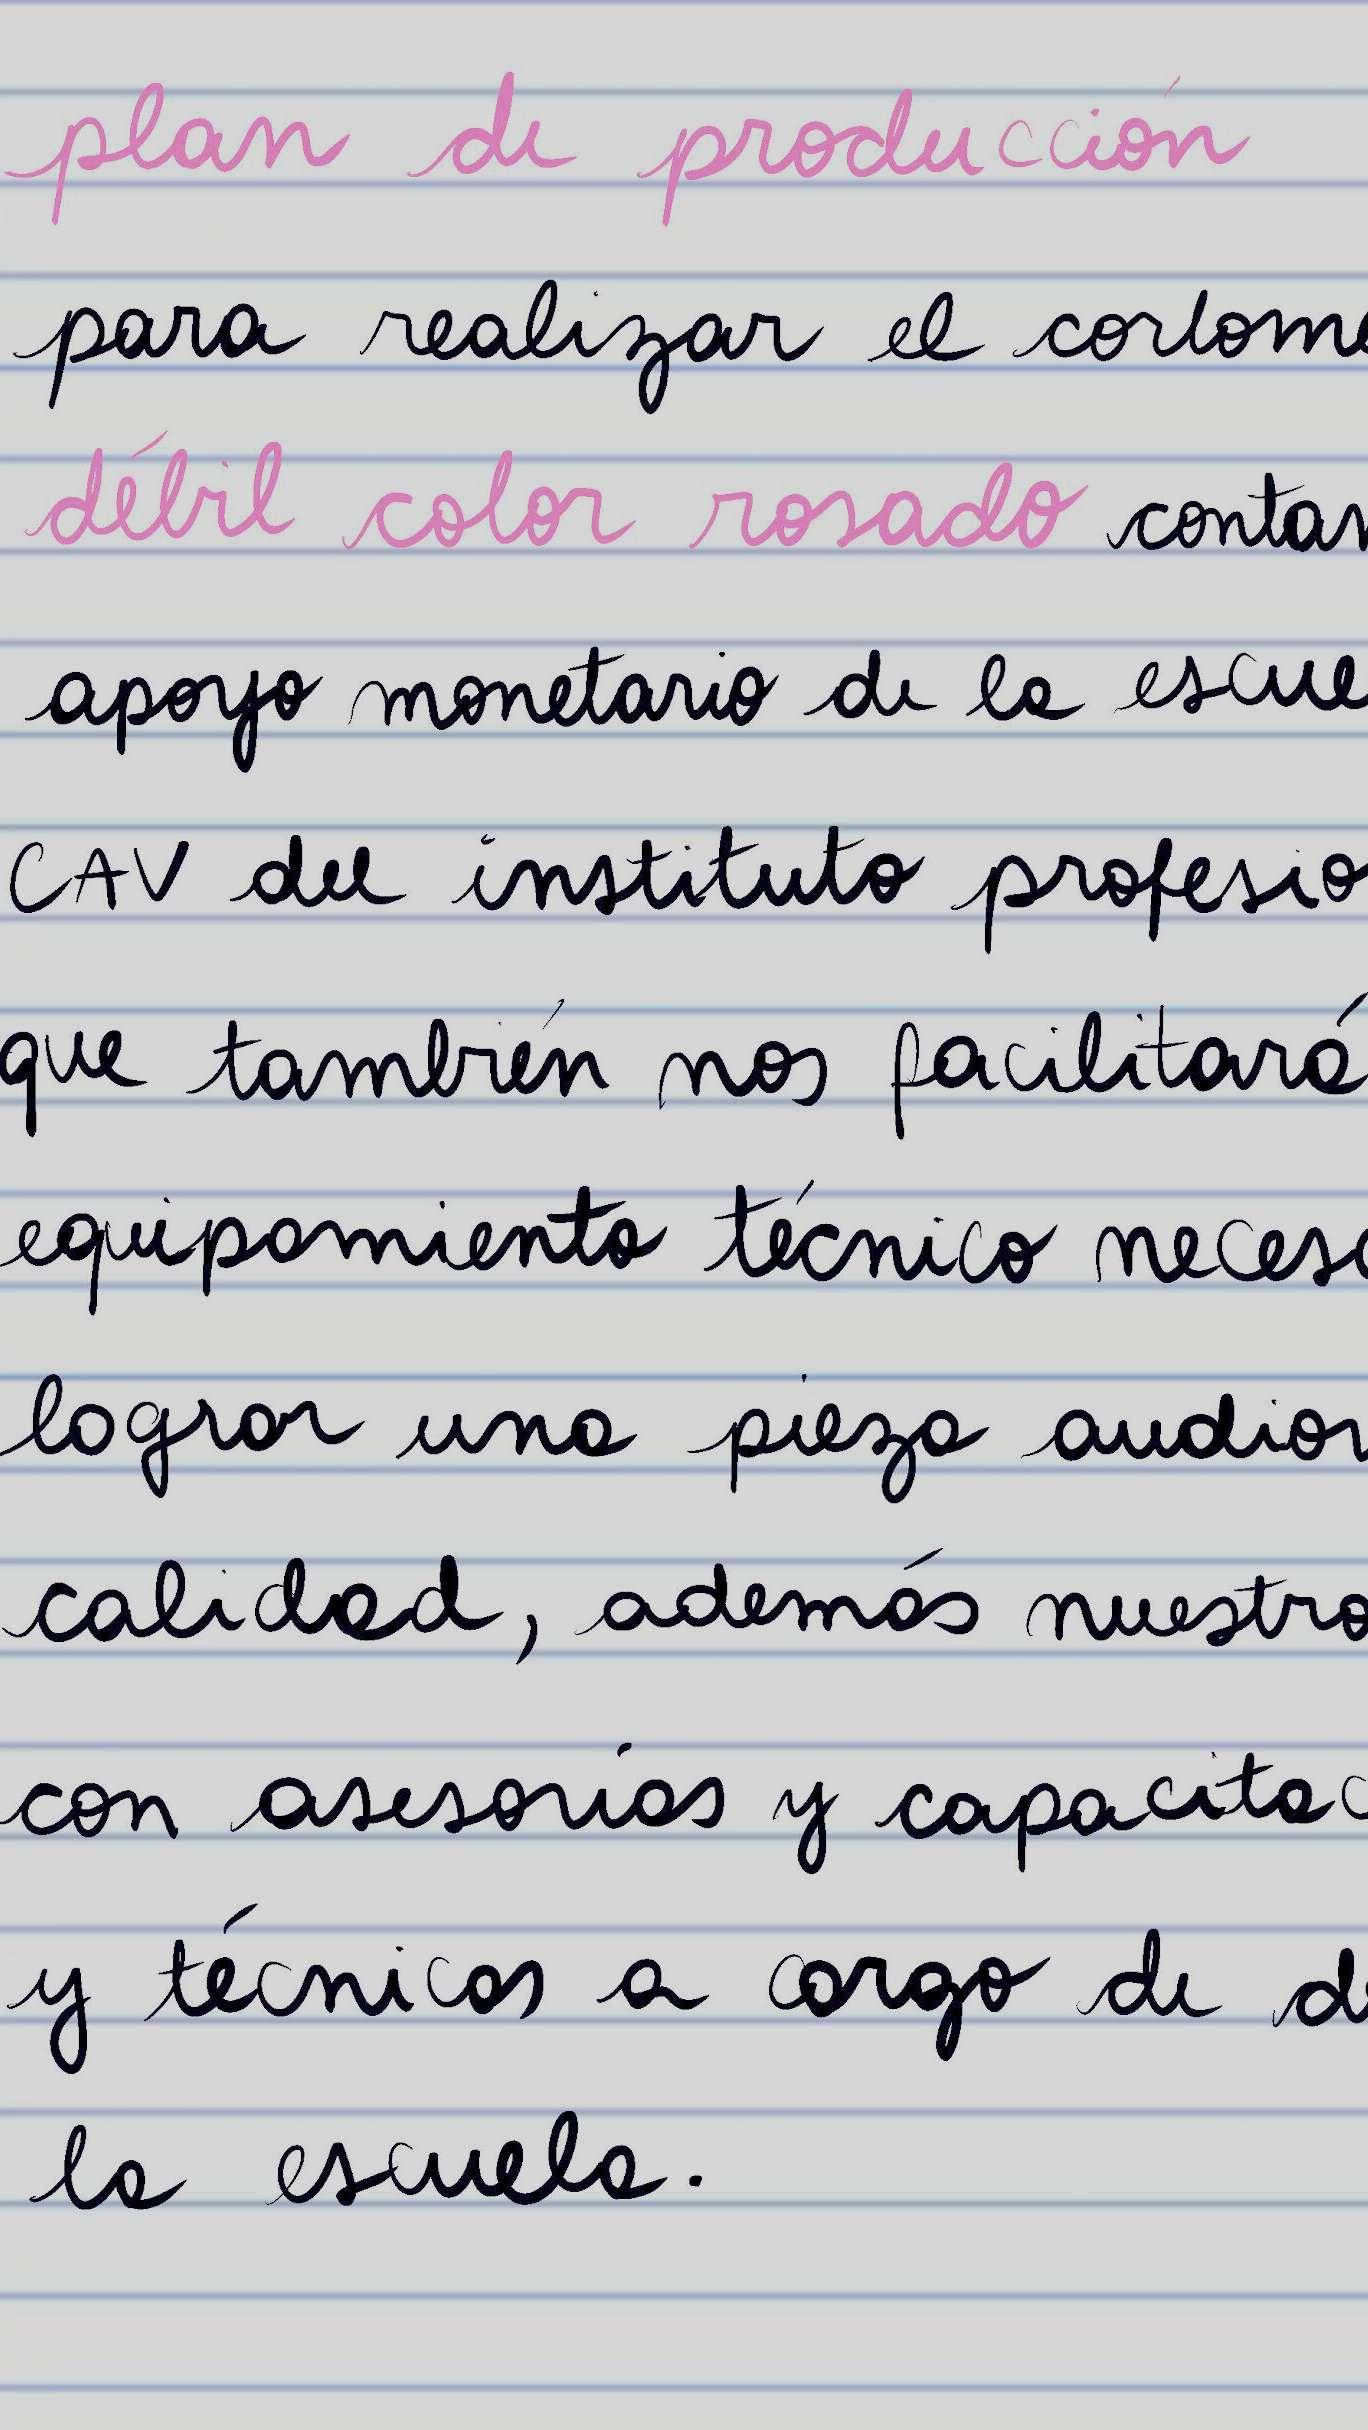 plan de producción
para realizar el cortome
débil color rosado contar
apoyo monetario de la escue
CAV del instituto profesio
que también nos facilitará
equipamiento técnico neces
lograr una pieza audiov
calidad, además nuestro
con asesorías y capacitac
y técnicas a cargo de d
la escuela.